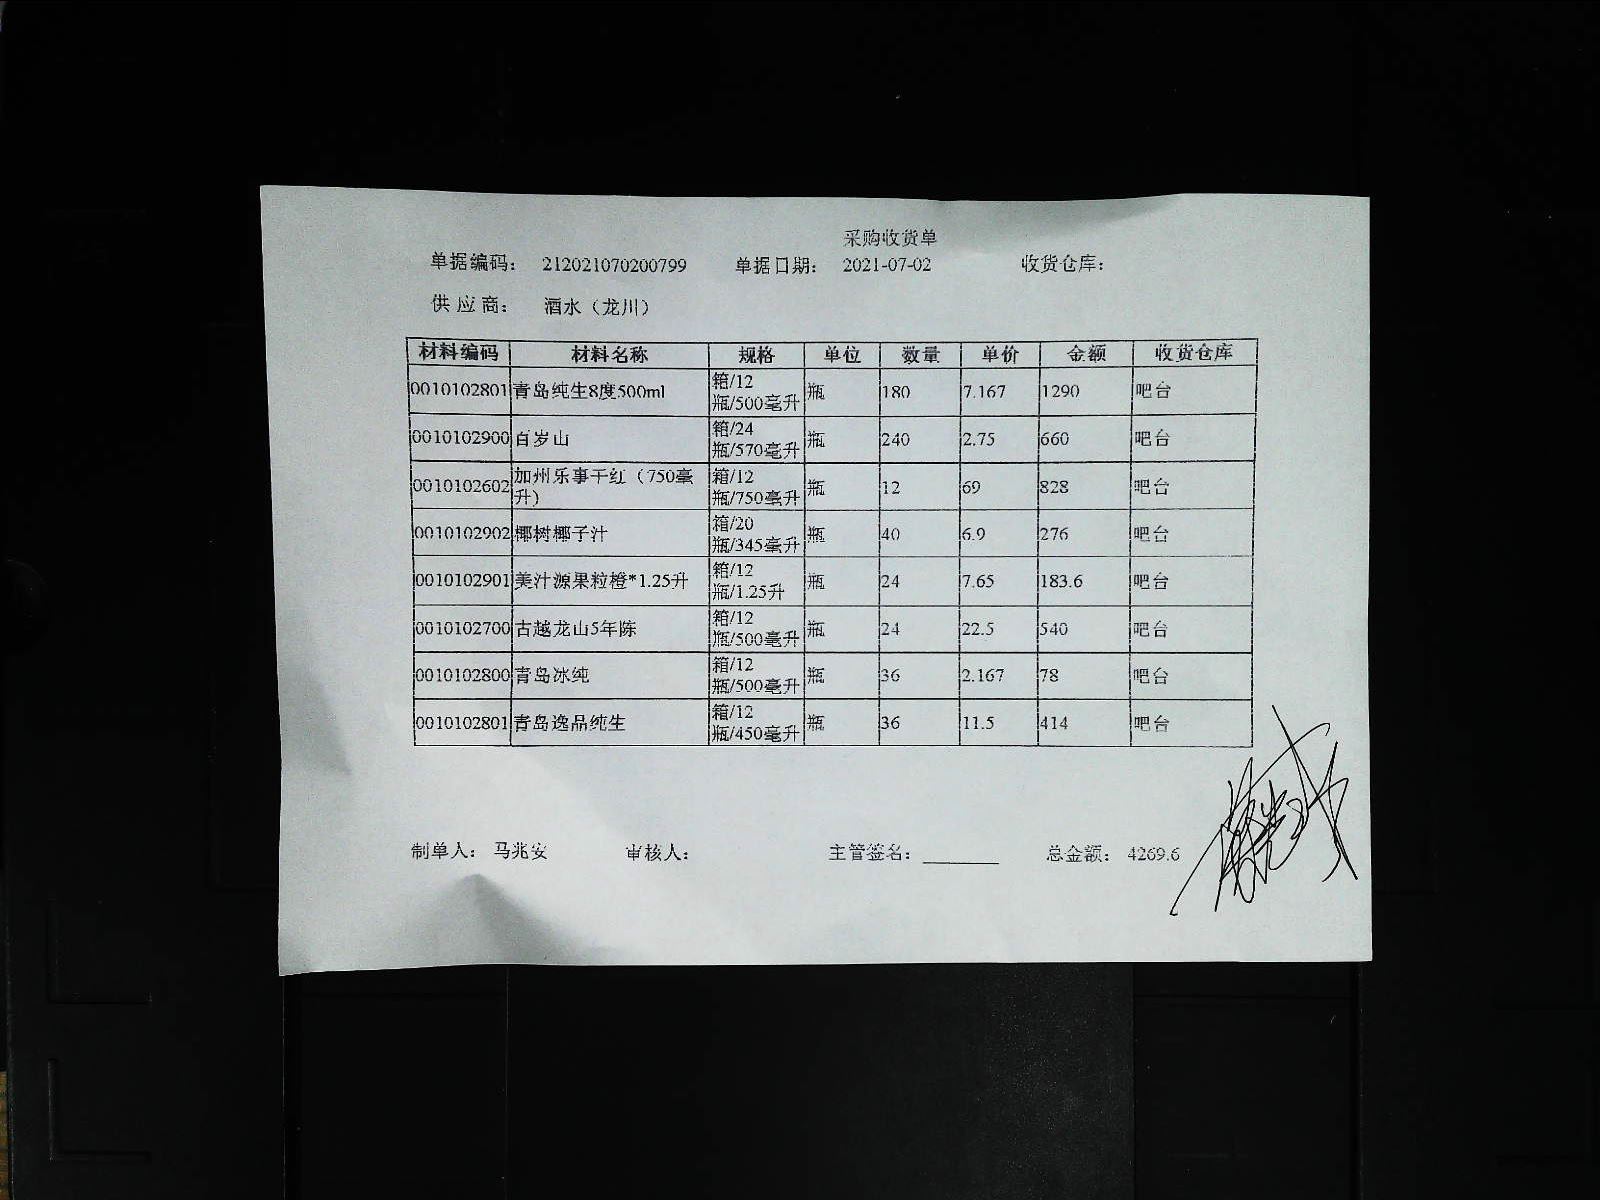 采购收货单
单据编码： 212021070200799 单据日期： 2021-07-02 收货仓库：
供应商： 酒水（龙川）
材料编码 材料名称 规格 单位 数量 单价 金额 收货仓库
0010102801 青岛纯生8度500ml 箱/12瓶/500毫升 瓶 180 7.167 1290 吧台
0010102900 百岁山 箱/24瓶/570毫升 瓶 240 2.75 660 吧台
0010102602 加州乐事干红（750毫升） 箱/12瓶/750毫升 瓶 12 69 828 吧台
0010102902 椰树椰子汁 箱/20瓶/345毫升 瓶 40 6.9 276 吧台
0010102901 美汁源果粒橙*1.25升 箱/12瓶/1.25升 瓶 24 7.65 183.6 吧台
0010102700 古越龙山5年陈 箱/12瓶/500毫升 瓶 24 22.5 540 吧台
0010102800 青岛冰纯 箱/12瓶/500毫升 瓶 36 2.167 78 吧台
0010102801 青岛逸品纯生 箱/12瓶/450毫升 瓶 36 11.5 414 吧台
制单人： 马兆安 审核人： 主管签名： 总金额： 4269.6